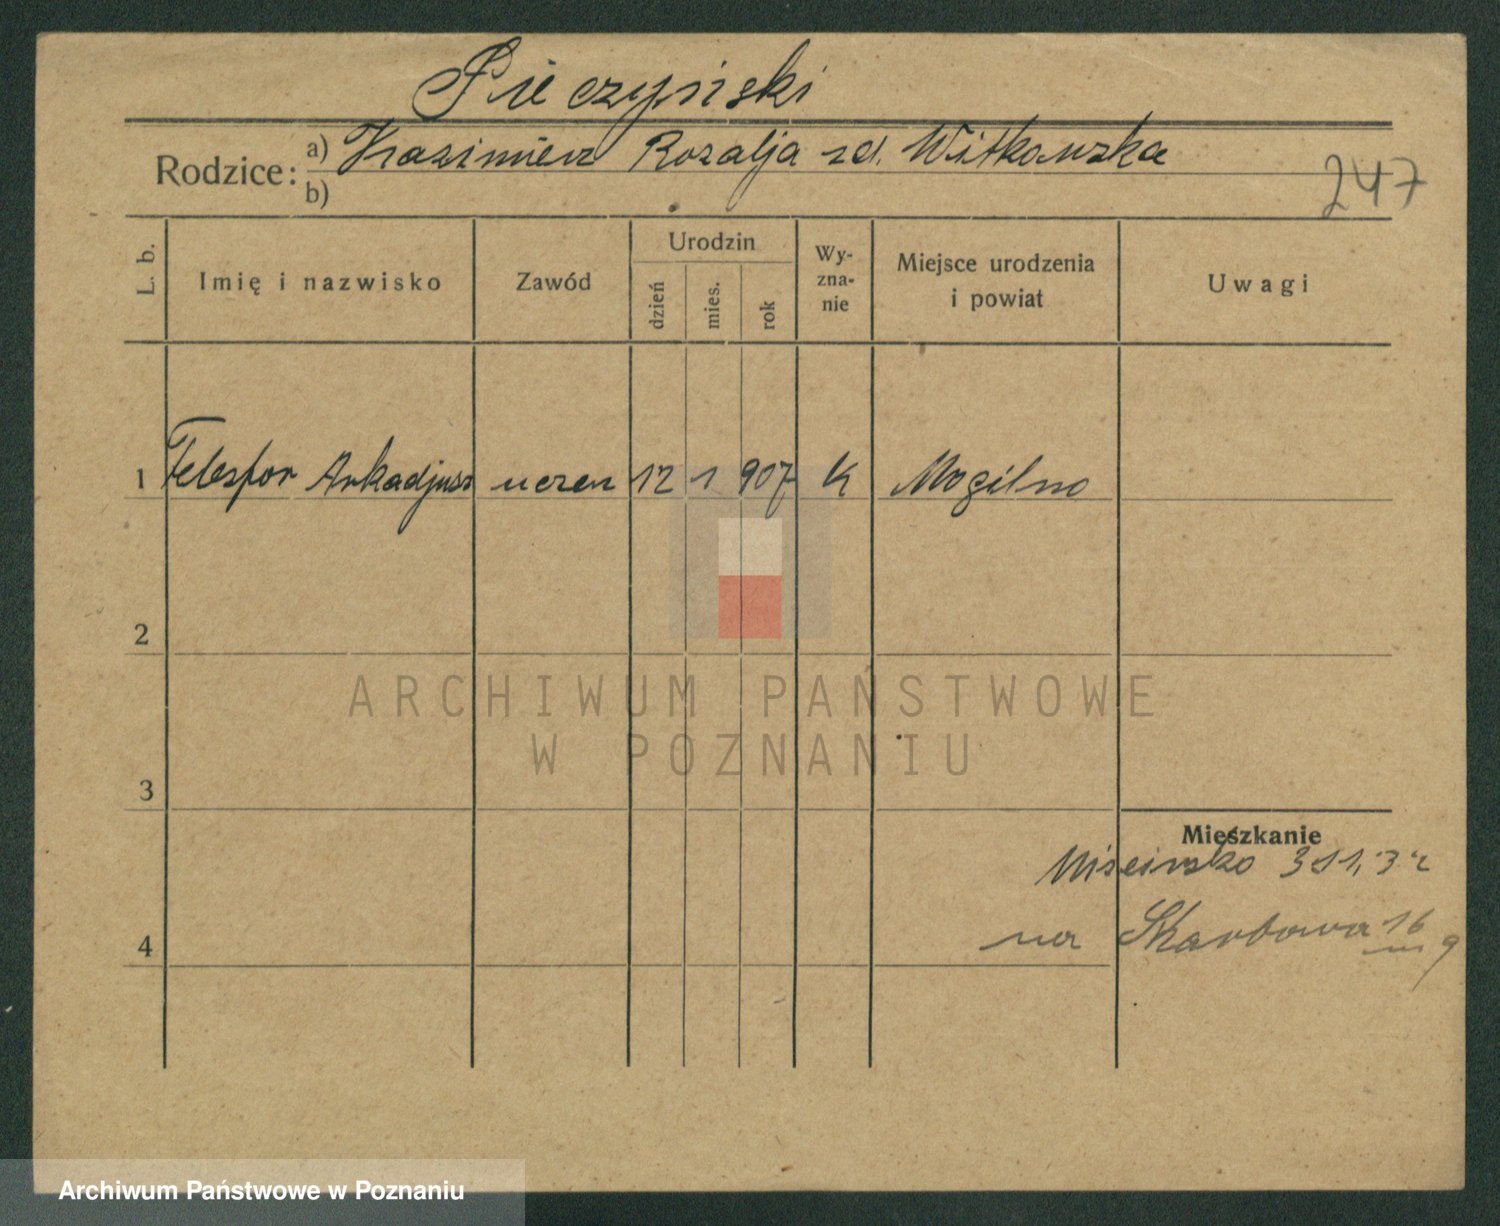 Pieczyński
Rodzice: a) Kazimierz Rozalja zd. Witkowska
b)
247
L. b. Imię i nazwisko Zawód Urodzin dzień mies. rok Wyzna-nie Miejsce urodzenia i powiat Uwagi
1 Telesfor Arkadjusz uczeń 12 1 907 k Mogilno
2
ARCHIWUM PAŃSTWOWE
W POZNANIU
3
Mieszkanie
4 na Skarbowa 16
m 9
Archiwum Państwowe w Poznaniu